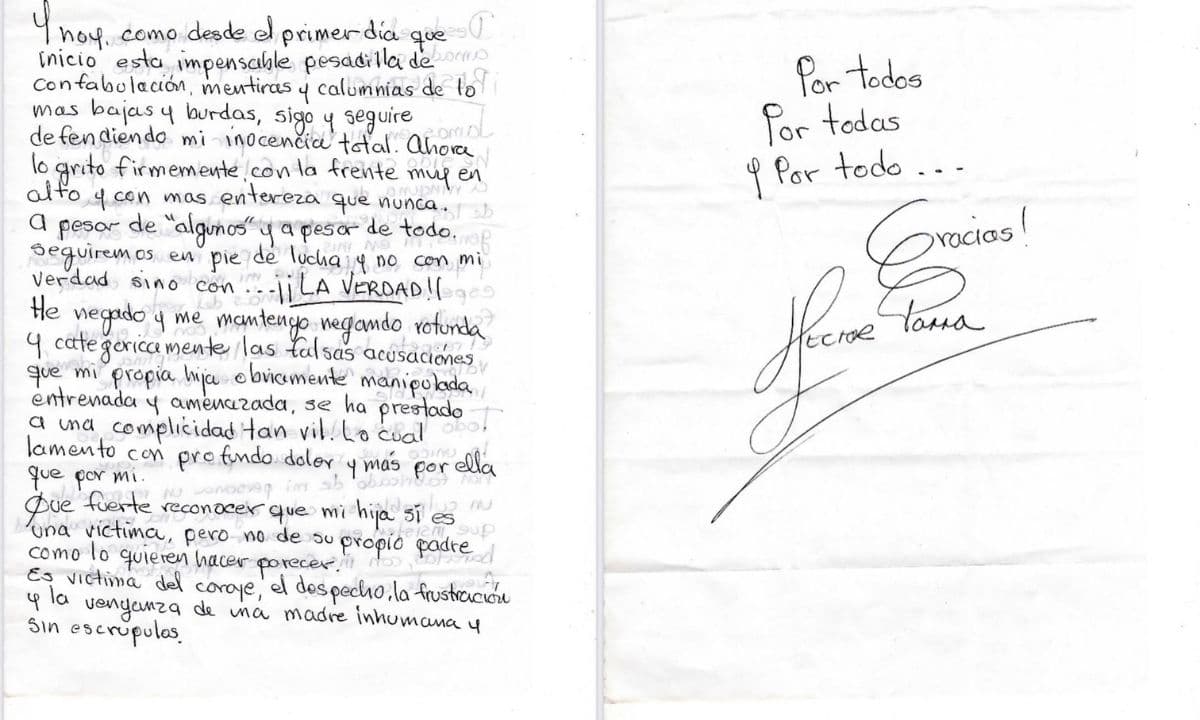 Y hoy, como desde el primer día que
inicio esta impensable pesadilla de
confabulación, mentiras y calumnias de lo
mas bajas y burdas, sigo y seguire
defendiendo mi inocencia total. Ahora
lo grito firmemente, con la frente muy en
alto y con mas entereza que nunca.
A pesar de "algunos" y a pesar de todo.
Seguiremos en pie de lucha, y no con mi
verdad sino con ...¡¡LA VERDAD!!
He negado y me mantengo negando rotunda
y categoricamente las falsas acusaciónes
que mi propia hija obviamente manipulada,
entrenada y amenazada, se ha prestado
a una complicidad tan vil. Lo cual
lamento con profundo dolor y más por ella
que por mi.
Que fuerte reconocer que mi hija sí es
una victima, pero no de su propio padre
como lo quieren hacer parecer.
Es victima del coraje, el despecho, la frustración
y la venganza de una madre inhumana y
sin escrupulos.
Por todos
Por todas
y Por todo ...
Gracias!
Hector Parra